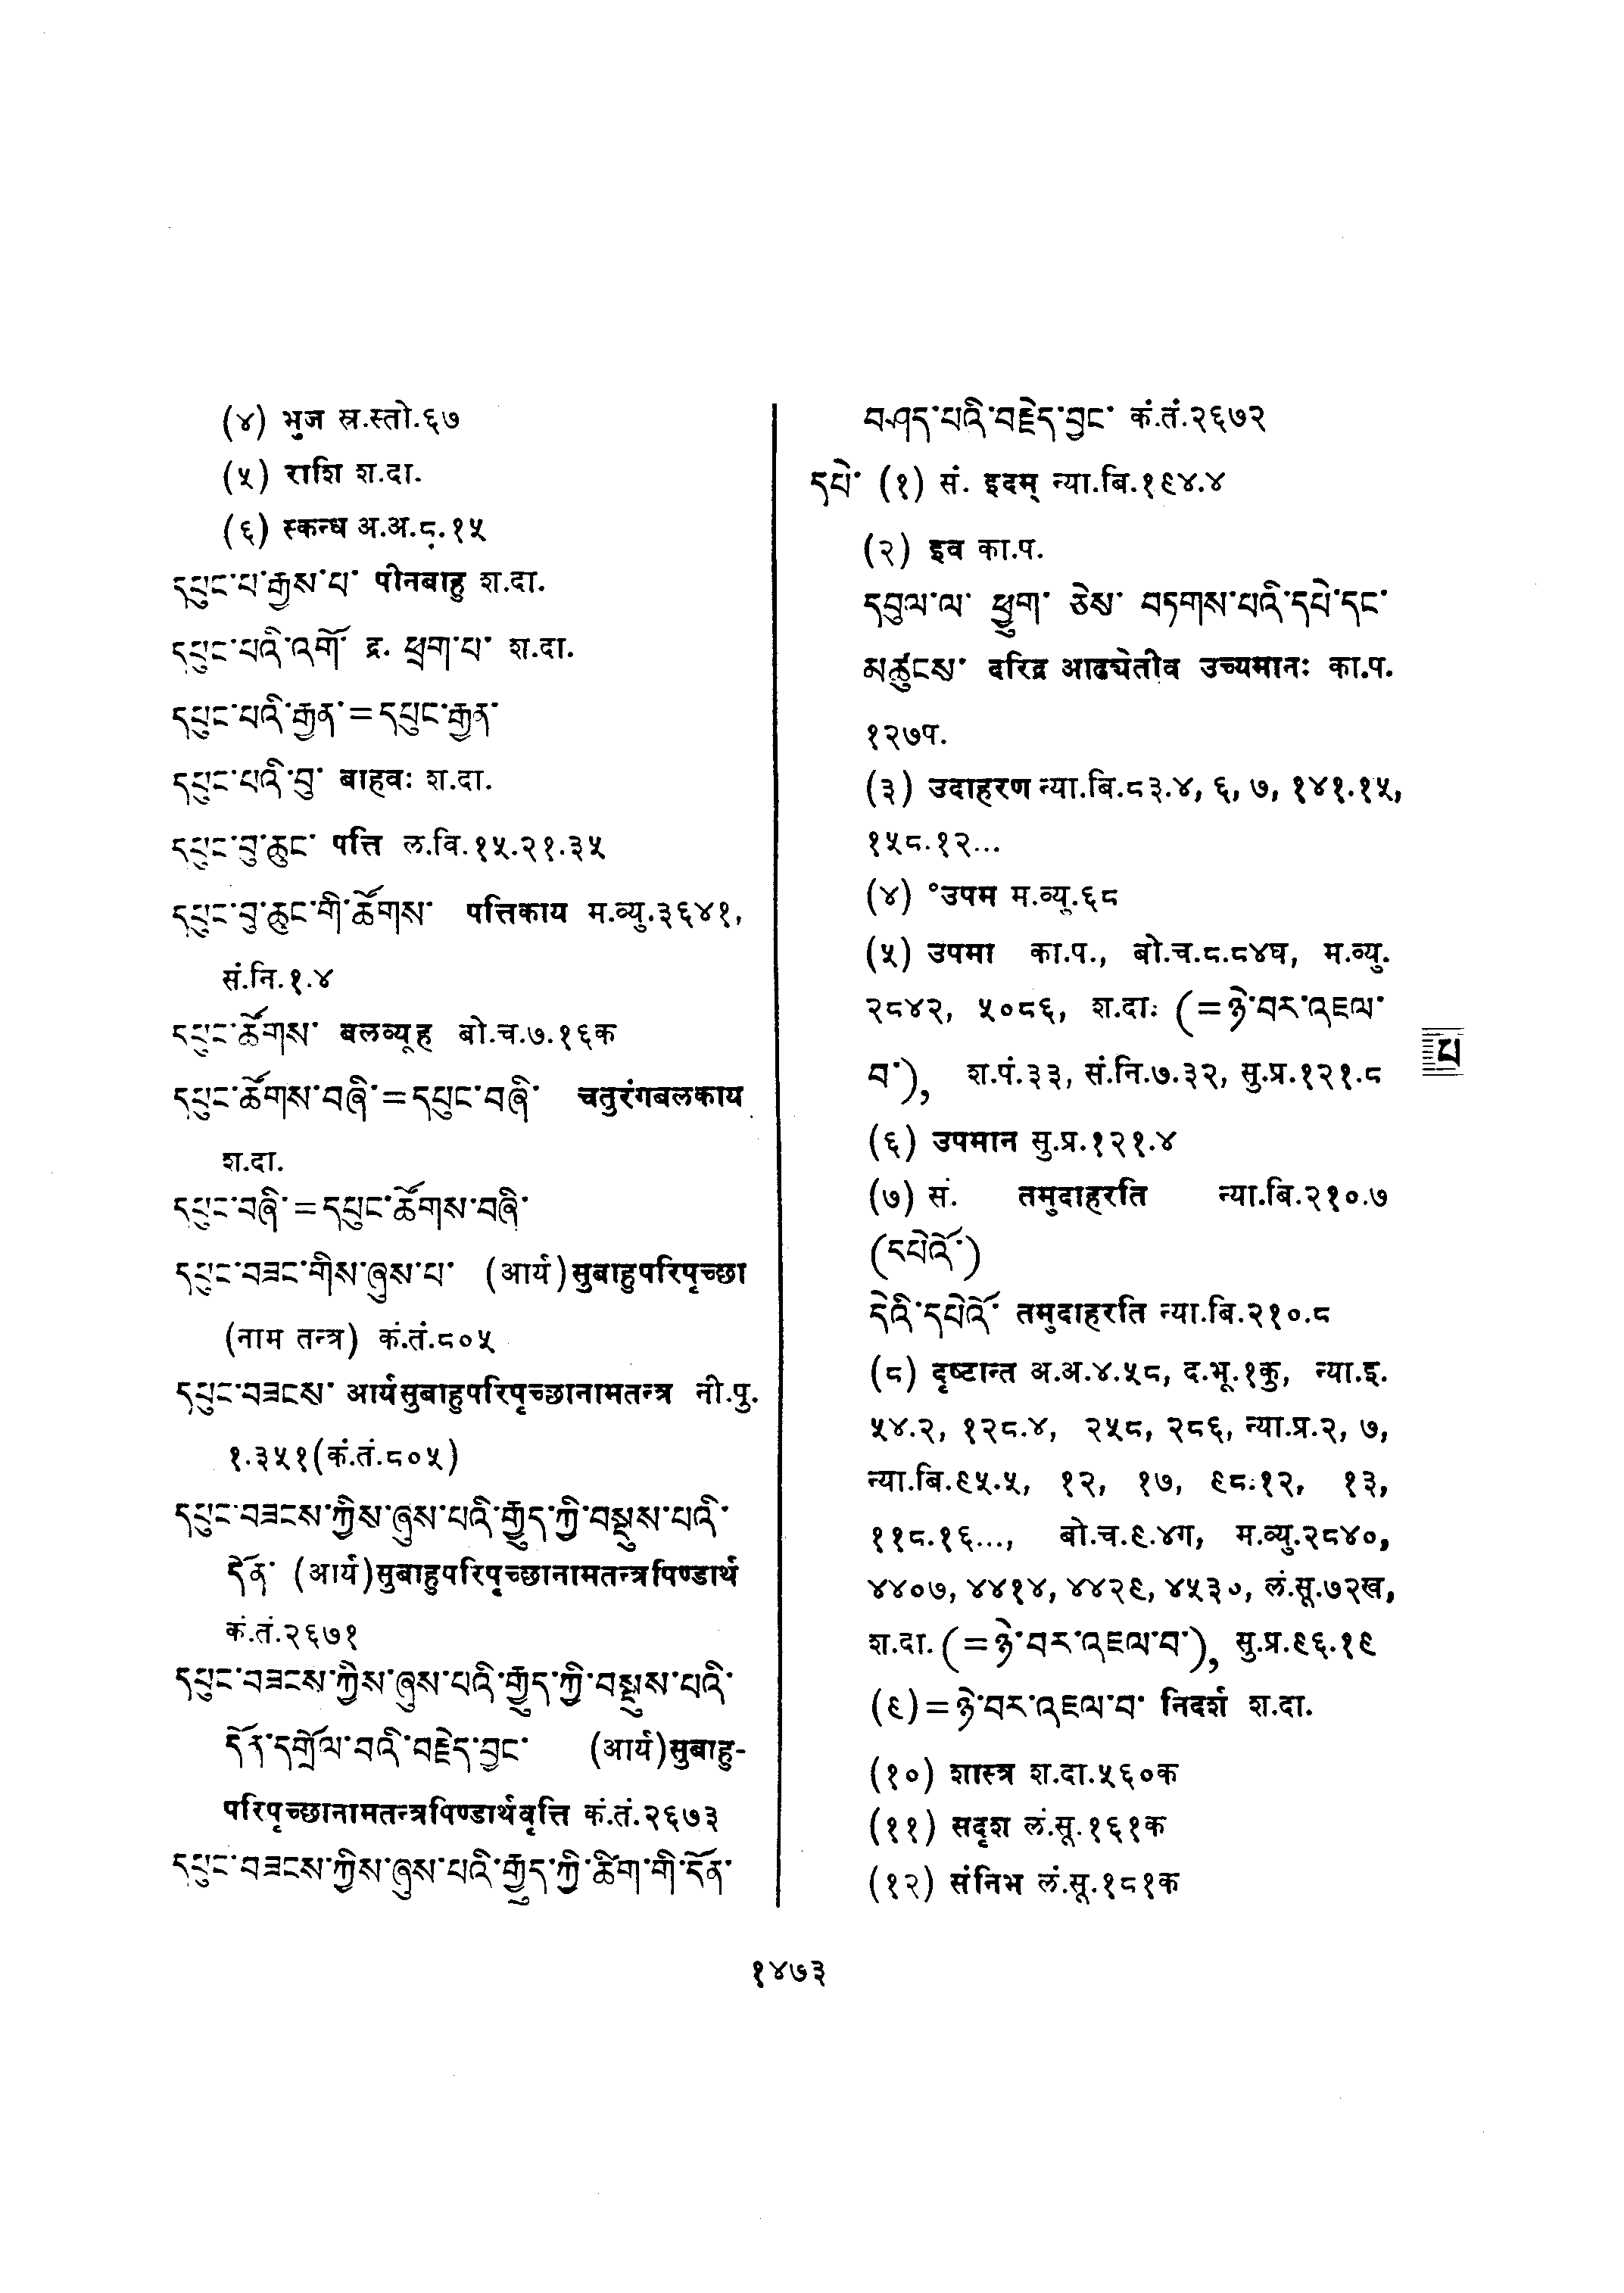 (४) भुज स्र.स्तो.६७
(५) राशि श.दा.
(६) स्कन्ध अ.अ.८.१५
དཔུང་པ་རྒྱས་པ་ पीनबाहु श.दा.
དཔུང་པའི་འགོ་ द्र. ཕྲག་པ་ श.दा.
དཔུང་པའི་རྒྱན་ = དཔུང་རྒྱན་
དཔུང་པའི་བུ་ बाहवः श.दा.
དཔུང་བུ་ཆུང་ पत्ति ल.वि.१५.२१.३५
དཔུང་བུ་ཆུང་གི་ཚོགས་ पत्तिकाय म.व्यु.३६४१,
सं.नि.१.४
དཔུང་ཚོགས་ बलव्यूह बो.च.७.१६क
དཔུང་ཚོགས་བཞི་ = དཔུང་བཞི་ चतुरंगबलकाय
श.दा.
དཔུང་བཞི་ = དཔུང་ཚོགས་བཞི་
དཔུང་བཟང་གིས་ཞུས་པ་ (आर्य) सुबाहुपरिपृच्छा
(नाम तन्त्र) कं.तं.८०५
དཔུང་བཟངས་ आर्यसुबाहुपरिपृच्छानामतन्त्र नी.पु.
१.३५१(कं.तं.८०५)
དཔུང་བཟངས་ཀྱིས་ཞུས་པའི་རྒྱུད་ཀྱི་བསྡུས་པའི་
དོན་ (आर्य)सुबाहुपरिपृच्छानामतन्त्रपिण्डार्थ
कं.तं.२६७१
དཔུང་བཟངས་ཀྱིས་ཞུས་པའི་རྒྱུད་ཀྱི་བསྡུས་པའི་
དོན་དགྲོལ་བའི་བརྗེད་བྱང་ (आर्य)सुबाहु-
परिपृच्छानामतन्त्रपिण्डार्थवृत्ति कं.तं.२६७३
དཔུང་བཟངས་ཀྱིས་ཞུས་པའི་རྒྱུད་ཀྱི་ཚིག་གི་དོན་
བཤད་པའི་བརྗེད་བྱང་ कं.तं.२६७२
དཔེ་ (१) सं. इदम् न्या.बि.१९४.४
(२) इव का.प.
དབུལ་ལ་ ཕྱུག་ ཅེས་ བཏགས་པའི་དཔེ་དང་
མཚུངས་ दरिद्र आढ्येतीव उच्यमानः का.प.
१२७प.
(३) उदाहरण न्या.बि.८३.४, ६, ७, १४१.१५,
१५८.१२...
(४) °उपम म.व्यु.६८
(५) उपमा का.प., बो.च.८.८४घ, म.व्यु.
२८४२, ५०८६, श.दाः (=ཉེ་བར་འཇལ་
བ་), श.पं.३३, सं.नि.७.३२, सु.प्र.१२१.८
(६) उपमान सु.प्र.१२१.४
(७) सं. तमुदाहरति न्या.बि.२१०.७
(དཔེའོ་)
དེའི་དཔེའོ་ तमुदाहरति न्या.बि.२१०.८
(८) दृष्टान्त अ.अ.४.५८, द.भू.१कु, न्या.इ.
५४.२, १२८.४, २५८, २८६, न्या.प्र.२, ७,
न्या.बि.९५.५, १२, १७, ९८.१२, १३,
११८.१६..., बो.च.९.४ग, म.व्यु.२८४०,
४४०७, ४४१४, ४४२९, ४५३०, लं.सू.७२ख,
श.दा. (=ཉེ་བར་འཇལ་བ་), सु.प्र.९६.१९
(९)=ཉེ་བར་འཇལ་བ་ निदर्श श.दा.
(१०) शास्त्र श.दा.५६०क
(११) सदृश लं.सू.१६१क
(१२) संनिभ लं.सू.१८१क
པ
१४७३